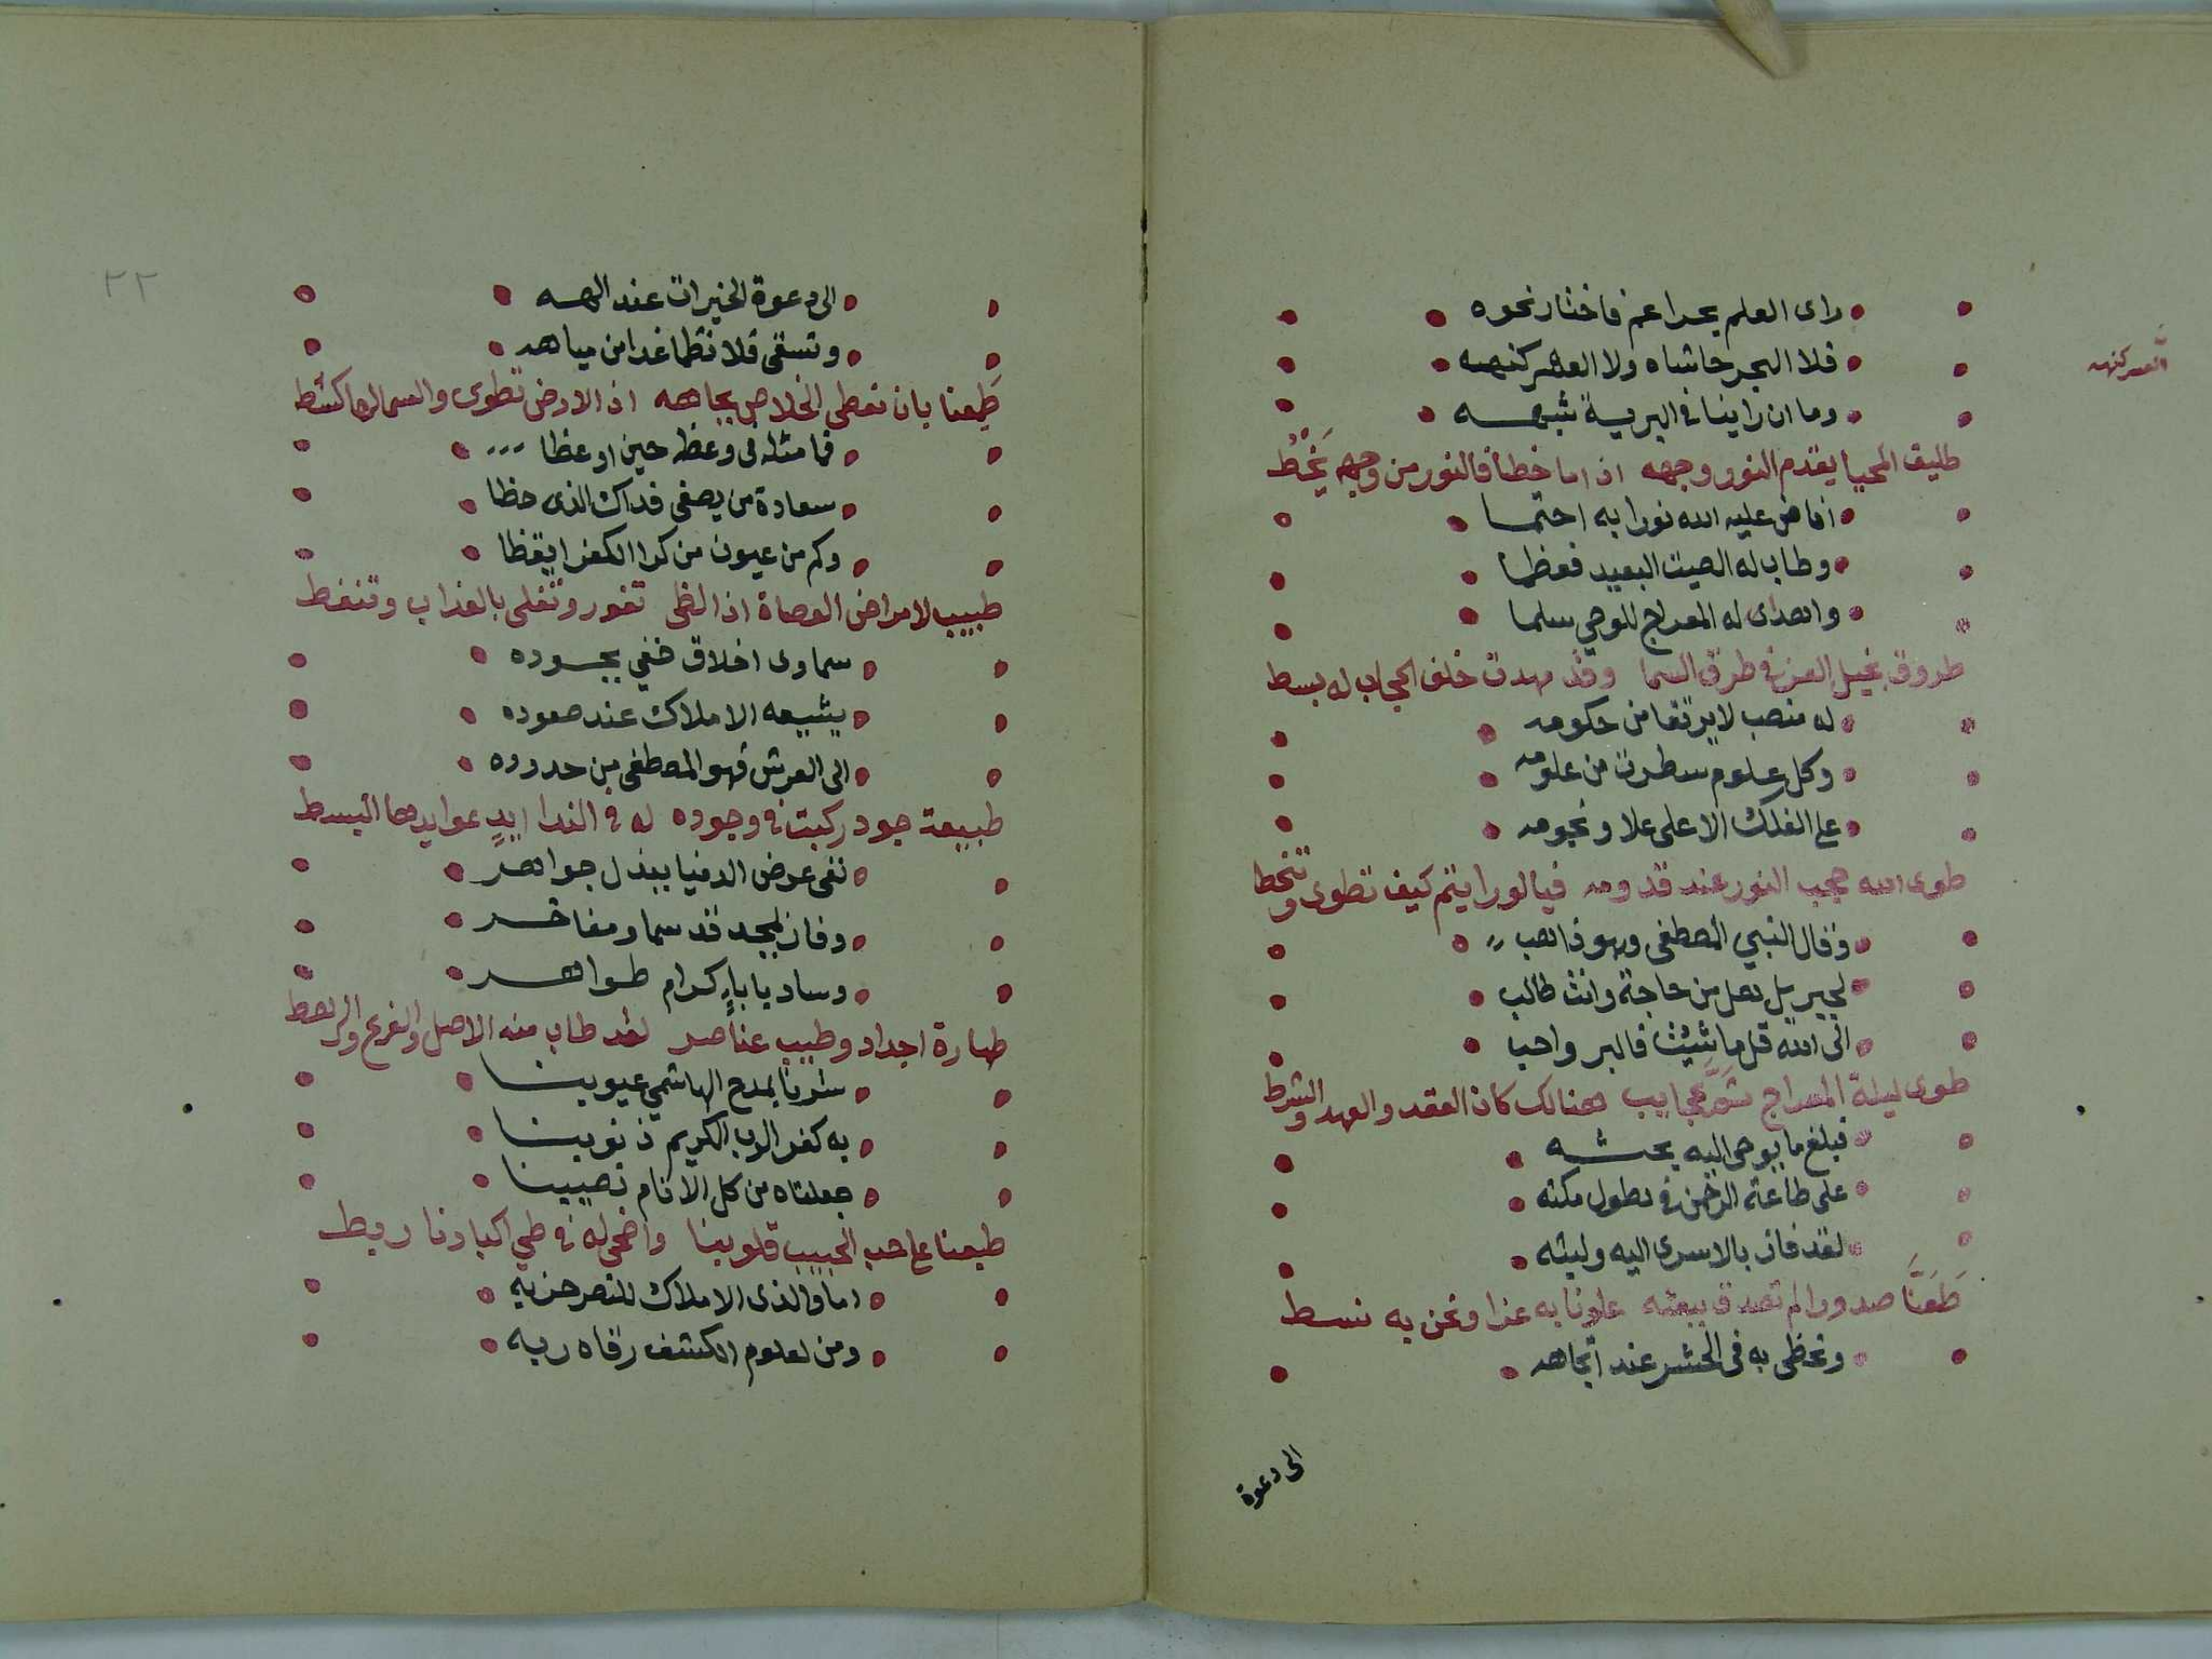 راى العلم بحرا عم فاختار نحوه
فلا البحر حاشاه ولا العسر كنهه
وما ان راينا في البرية شبهه
طليق المحيا يقدم النور وجهه اذا ما خطا فالنور من وجهه يخط
افاض عليه الله نورا به احتما
وطاب له الصيت البعيد فعظما
واهدى له المعراج للوحي سلما
طروق بخيل العز في طرق السما وقد مهدت خلف الحجاب له بسط
له منصب لا يرتقا من حكومه
وكل علوم سطرت من علومه
على الفلك الاعلى علا ونجومه
طوى الله حجب النور عند قدومه فيا لو رايتم كيف تطوى وتنخط
وقال النبي المصطفى وهو ذاهب
لجبريل هل من حاجة وانت طالب
الى الله قل ما شيت فالبر واهب
طوى ليلة المعراج ثم عجايب هنالك كان العقد والعهد والشرط
فبلغ ما يوحى اليه بحثه
على طاعة الرحمن في طول مكثه
لقد فاز بالاسرى اليه ولبثه
طعنا صدورا لم تصدق ببعثه علونا به عزا ونحن به نسط
ونحظى به في الحشر عند اتجاهه
الى دعوة
٢٢
الى دعوة الخيرات عند الهه
وتسقى فلا نظما غدا من مياهه
طمعنا بان نعطى الخلاص بجاهه اذ الارض تطوى والسما لها كشط
فما مثله في وعظه حين اوعظا
سعادة من يصغى فداك الذى حظا
وكم من عيون من كرا الكفر ايقظا
طبيب لامراض العصاة اذا لظى تفور وتغلى بالعذاب وتنغط
سماوى اخلاق خفي بجوده
يشيعه الاملاك عند صعوده
الى العرش فهو المصطفى من حدوده
طبيعة جود ركبت في وجوده له في الندا ايد عوايدها البسط
نفى عرض الدنيا ببذل جواهر
وفاز بمجد قد سما ومفاخر
وساد بابا كرام طواهر
طهارة اجداد وطيب عناصر لقد طاب منه الاصل والفرع والرهط
سترنا بمدح الهاشمي عيوبنا
به كفر الرب الكريم ذنوبنا
جعلناه من كل الانام نصيبنا
طبعنا على حب الحبيب قلوبنا واضحى له في طي اكبادنا ربط
اما والذى الاملاك للنصر حزبه
ومن لعلوم الكشف رقاه ربه